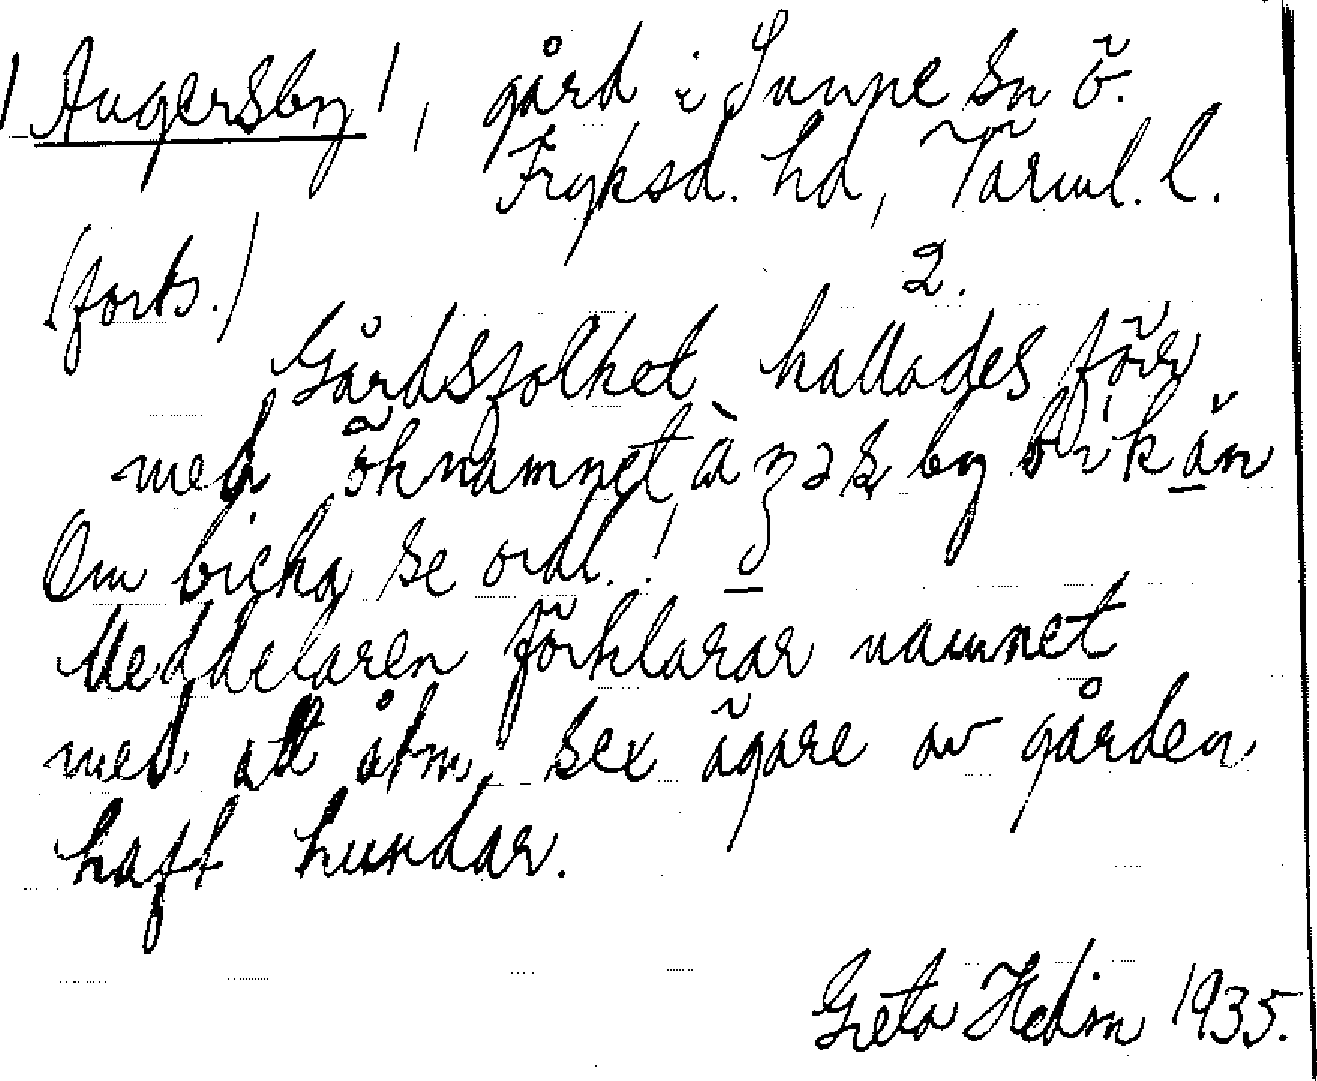 /Angersby/, gård i Sunne sn Ö.
Fryksd. hd, Värml. l.
(forts.)
2.
Gårdsfolket kallades förr
med öknamnet by
Om bicka se ordl.!
Meddelaren förklarar namnet
med att åtm. sex ägare av gården
haft hundar.
Greta Hedin 1935.